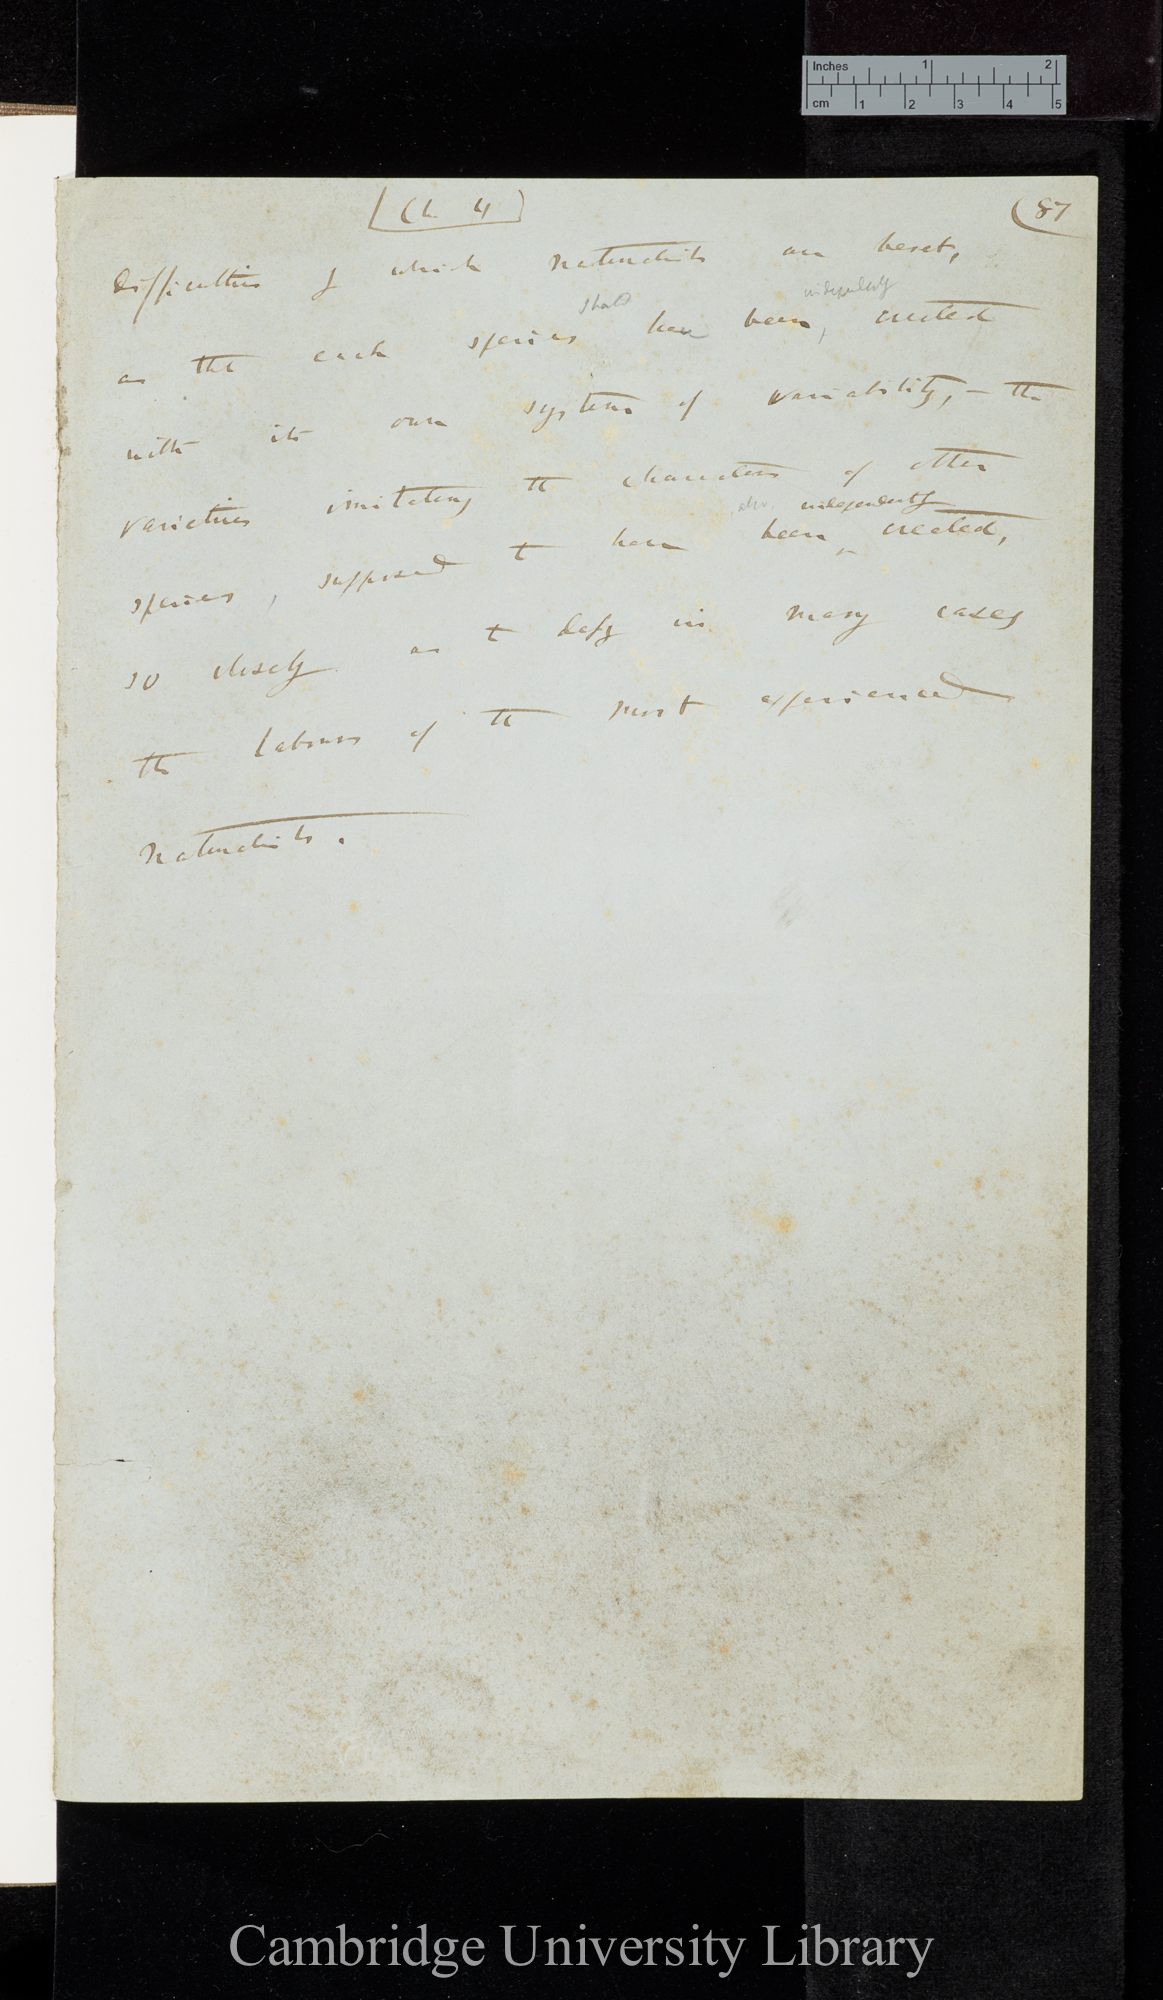 Inches 1 2
cm 1 2 3 4 5
(Ch 4)
(87
difficulties of which naturalists are beset,
should independently
as that each species have been, created
with its own system of variability, – the
varieties imitating the characters of other
also, independently
species, supposed to have been ^ created,
so closely as to defy in many cases
the labours of the most experienced
naturalists.
Cambridge University Library